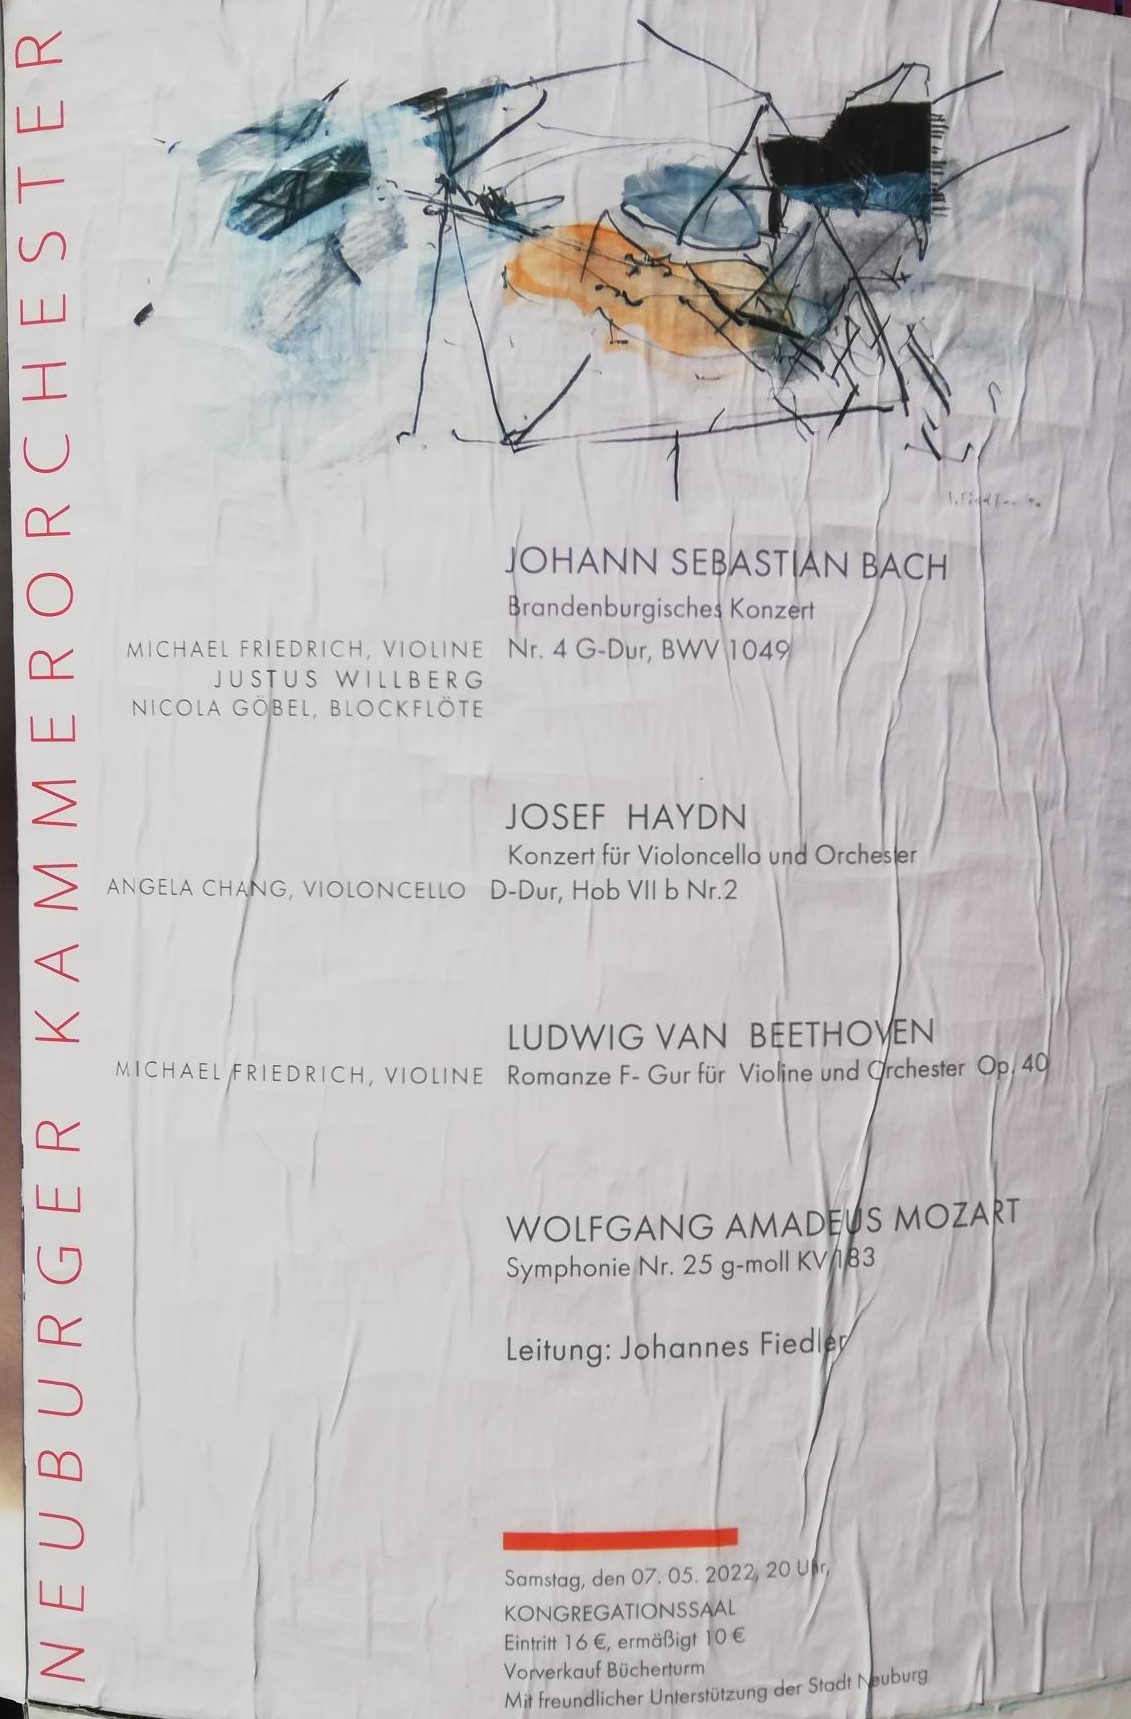 NEUBURGER KAMMERORCHESTER
JOHANN SEBASTIAN BACH
Brandenburgisches Konzert
MICHAEL FRIEDRICH, VIOLINE Nr. 4 G-Dur, BWV 1049
JUSTUS WILLBERG
NICOLA GÖBEL, BLOCKFLÖTE
JOSEF HAYDN
Konzert für Violoncello und Orchester
ANGELA CHANG, VIOLONCELLO D-Dur, Hob VII b Nr.2
LUDWIG VAN BEETHOVEN
MICHAEL FRIEDRICH, VIOLINE Romanze F- Gur für Violine und Orchester Op. 40
WOLFGANG AMADEUS MOZART
Symphonie Nr. 25 g-moll KV 183
Leitung: Johannes Fiedler
Samstag, den 07. 05. 2022, 20 Uhr,
KONGREGATIONSSAAL
Eintritt 16 €, ermäßigt 10 €
Vorverkauf Bücherturm
Mit freundlicher Unterstützung der Stadt Neuburg